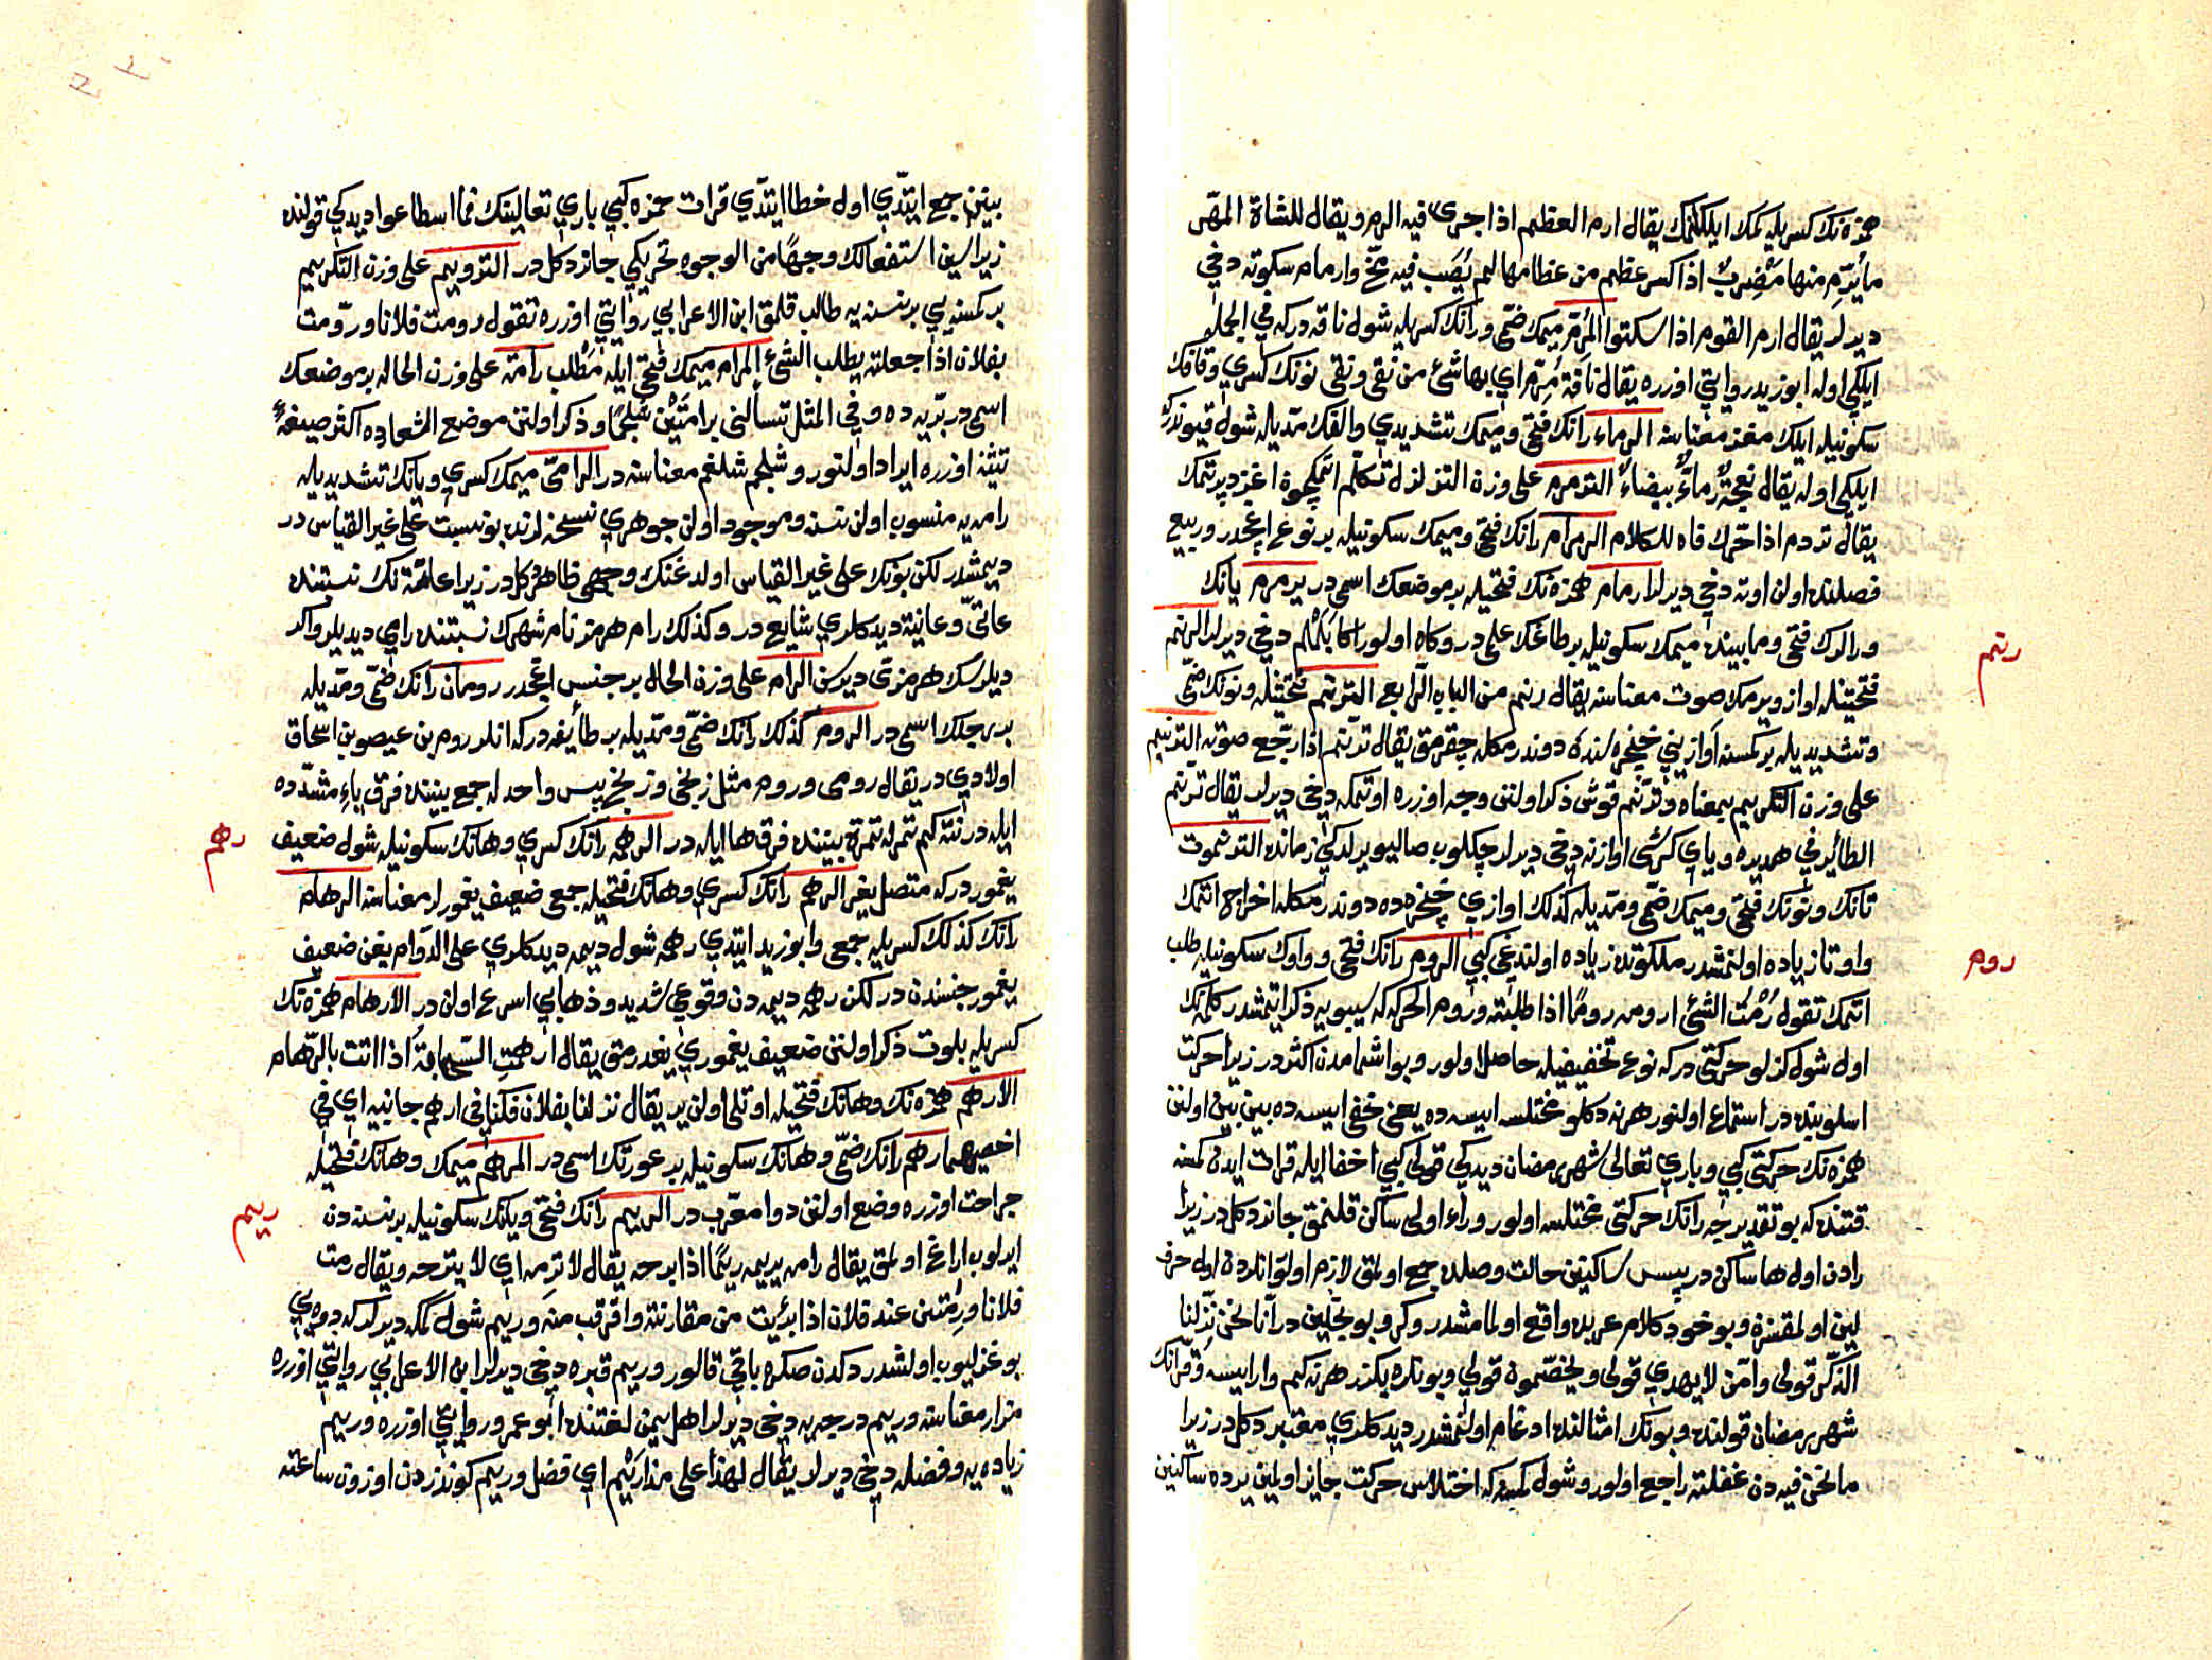 همزه نك كسريله كمك ايلكلنمك يقال ارم العظم اذا جرى فيه الرم ويقال للشاة المهز
ما يرم منها مضرب اذا كسر عظم من عظامها لم يصب فيه مخ وارمام سكوته دخي
ديرلر يقال ارم القوم اذا سكتوا المرم ميمك ضمى ورانك كسريله شول ناقه دركه في الجمله
ايلكي اوله ابوزيد روايتي اوزره يقال ناقة مرم اي بها شئ من نقى ونقى نونك كسري وقافك
سكونيله ايلك مغز معناسنه الرماء رانك فتحى وميمك تشديدي والفك مديله شول قيونك
ايلكي اوله يقال نعجة رماء بيضاء الترمرم على وزن التزلزل تكلم اتمكچون اغز دپرتمك
يقال ترمرم اذا حرك فاه للكلام الرمرام رانك فتحى وميمك سكونيله بر نوع اغجدر وربيع
فصلنده اولن اوته دخي ديرلر ارمام همزه نك فتحيله بر موضعك اسمى در يرمرم يانك
ورالرك فتحى ومابينده ميمك سكونيله بر طاغك علمى در وكاه اولور اكا يلملم دخي ديرلر الرنم
رنم
فتحتينله اواز ويرمك صوت معناسنه يقال رنم من الباب الرابع الترنم فتحتينله ونونك ضمى
وتشديديله بر كمسنه اوازيني حنجره سنده دوندرمكله چقرمق يقال ترنم اذا رجع صوته الترنيم
على وزن التكريم بمعناه وترنم قوش ذكر اولنن وجه اوزره اوتمكه دخي ديرلر يقال ترنم
الطائر في هديره وياي كرشى اوازنه دخي ديرلر چكلوب صاليويرلدكي زمانده الترنموت
تانك ونونك فتحى وميمك ضمى ومديله كذلك اوازي حنجره ده دوندرمكله اخراج اتمك
واو وتا زياده اولنمشدر ملكوتده زياده اولندغى كبي الروم رانك فتحى وواوك سكونيله طلب
روم
اتمك تقول رمت الشئ اروم روما اذا طلبته وروم الحركه كه سيبويه ذكر ايتمشدر كلمه نك
اول شول كزلو حركتى دركه نوع تخفيفيله حاصل اولور وبو اشمامدن اكثر در زيرا حركت
اسلوبنده در استماع اولنور هر نه دكلو مختلسه ايسه ده يعني خفي ايسه ده بين بين اولنن
همزه نك حركتى كبي وباري تعالى شهر رمضان ديدكي قولى كبي اخفا ايله قرات ايدن كمسنه
قتنده كه بو تقديرجه رانك حركتى مختلسه اولور وراء اولى ساكن قلنمق جائز دكلدر زيرا
رادن اول ها ساكن در پس ساكنين حالت وصلده جمع اولمق لازم اولور انلردن اول حرف
لين اولمقسزن وبو خود كلام عربده واقع اولمامشدر وكرو بويجلين در انا نحن نزلنا
الذكر قولى وامن لا يهدي قولى ويخصمون قولي وبونلره بكزر هر نه كيم وارايسه وقرانك
شهر رمضان قولنده وبونك امثالنده ادغام اولنمشدر ديدكلري معتبر دكلدر زيرا
ما نحن فيه دن غفلته راجع اولور وشول كمسه كه اختلاس حركت جائز اولمين يرده ساكنين
بيننى جمع ايتدي اول خطا ايتدي قرات حمزه كبي باري تعالينك فما اسطاعوا ديدكي قولنده
زيرا سين استفعالك وجها من الوجوه تحريكي جائز دكلدر الترويم على وزن التكريم
بر كمسنه يي بر نسنه يه طالب قلمق ابن الاعرابي روايتي اوزره تقول رومت فلانا ورومت
بفلان اذا جعلته يطلب الشئ المرام ميمك فتحى ايله مطلب رامة على وزن الحاله بر موضعك
اسمى در بريه ده وفي المثل تسألني برامتين سلجما وذكر اولنن موضع اشعارده اكثر صيغه
تثنيه اوزره ايراد اولنور وشلجم شلغم معناسنه در الرامى ميمك كسري ويانك تشديديله
رامه يه منسوب اولن نسنه وموجود اولن جوهري نسخه لرنده بو نسبت على غير القياس در
ديمشدر لكن بونك على غير القياس اولدغنك وجهى ظاهر دكلدر زيرا عامه نك نسبتنده
عامى وعانية ديدكلري شايع در وكذلك رام هرمز نام شهرك نسبتنده رامي ديديلر واكر
ديلرسك هرمزى ديرسن الرام على وزن الحال بر جنس اغجدر رومان رانك ضمى ومديله
بر رجلك اسمى در الروم كذلك رانك ضمى ومديله بر طائفه دركه انلر روم بن عيصو بن اسحاق
اولادي در يقال رومى وروم مثل زنجى وزنج پس واحد له جمع بيننده فرق ياء مشدده
ايله در نته كم تمر له تمرة بيننده فرق ها ايله در الرهمه رانك كسري وهانك سكونيله شول ضعيف
رهم
يغموردركه متصل يغر الرهم رانك كسري وهانك فتحيله جمعى ضعيف يغمورلر معناسنه الرهام
رانك كذلك كسريله جمعى وابوزيد ايتدي رهمه شول ديمه ديدكلري على الدوام يغن ضعيف
يغمور جنسندن در لكن رهمه ديمه دن وقوعي شديد وذهابي اسرع اولن در الارهام همزه نك
كسريله بلوت ذكر اولنن ضعيف يغموري يغدرمق يقال ارهمت السحابة اذا اتت بالرهام
الارهم همزه نك وهانك فتحيله اوتلى اولن ير يقال نزلنا بفلان فكنا في ارهم جانبيه اي في
اخصبهما رهم رانك ضمى وهانك سكونيله بر عورتك اسمى در المرهم ميمك وهانك فتحيله
جراحت اوزره وضع اولنن دوا معرب در الريم رانك فتحى ويانك سكونيله بر نسنه دن
ريم
ايرلوب ايراغ اولمق يقال رامه يريمه ريما اذا برحه يقال لا ترمه اي لا تبرحه ويقال رمت
فلانا ورمت من عند فلان اذا برئت من مقارنته واقترب منه وريم شول كمكه ديرلر كه دوه يي
بوغزليوب اولشدركدن صكره باقي قالور وريم قبره دخي ديرلر ابن الاعرابي روايتي اوزره
مزار معناسنه وريم درجه يه دخي ديرلر اهل يمن لغتنده ابو عمرو روايتي اوزره وريم
زياده يه وفضله دخي ديرلر يقال لهذا على هذا ريم اي فضل وريم كوندزدن اوزون ساعته